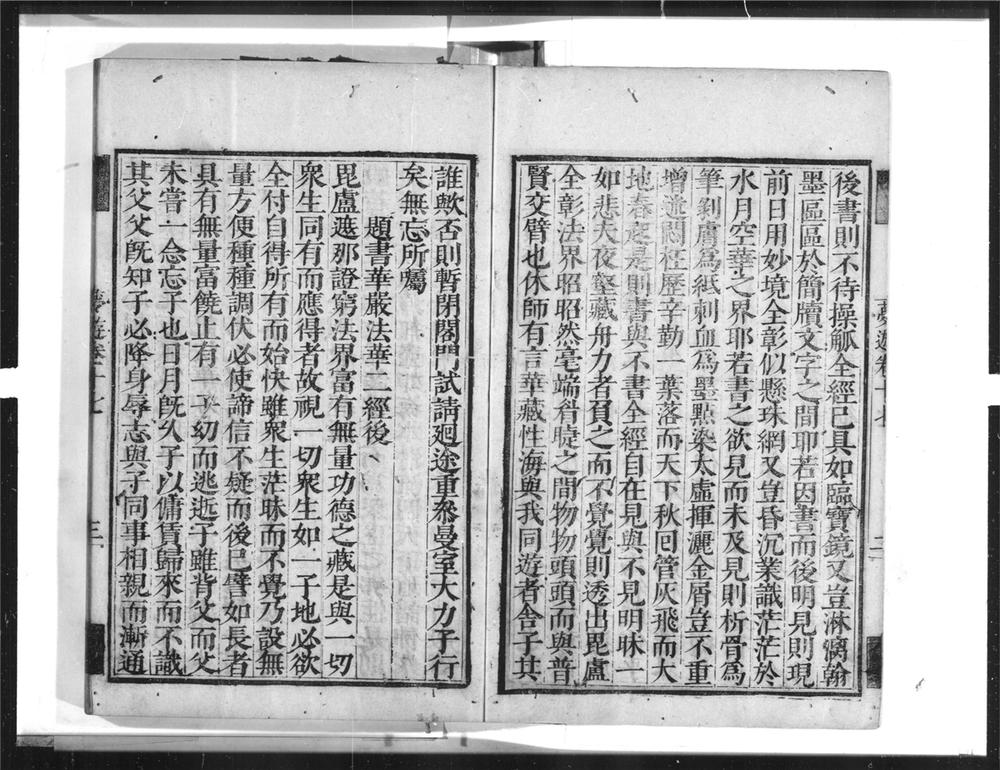 後書則不待操觚全經已具如臨寶鏡又豈淋漓翰
墨區區於簡牘文字之間耶若因書而後明見則現
前日用妙境全彰似懸珠網又豈昏沉業識茫茫於
水月空華之界耶若書之欲見而未及見則析骨為
筆剝膚為紙刺血為墨點染太虛揮灑金屑豈不重
增迷悶枉歷辛勤一葉落而天下秋回管灰飛而大
地春意是則書與不書全經自在見與不見明昧一
如悲夫夜壑藏舟力者負之而不覺覺則透出毘盧
全彰法界昭昭然毫端眥睫之間物物頭頭而與普
賢交臂也休師有言華藏性海與我同遊者舍子其
夢遊卷十七
二
誰歟否則暫閉閣門試請廻途重叅曼室大力子行
矣無忘所囑
題書華嚴法華二經後
毘盧遮那證窮法界富有無量功德之藏是與一切
衆生同有而應得者故視一切衆生如一子地必欲
全付自得所有而始快雖衆生茫昧而不覺乃設無
量方便種種調伏必使諦信不疑而後已譬如長者
具有無量富饒止有一子幼而逃逝子雖背父而父
未嘗一念忘子也日月旣久子以傭賃歸來而不識
其父父旣知子必降身辱志與子同事相親而漸通
夢遊卷十七
三